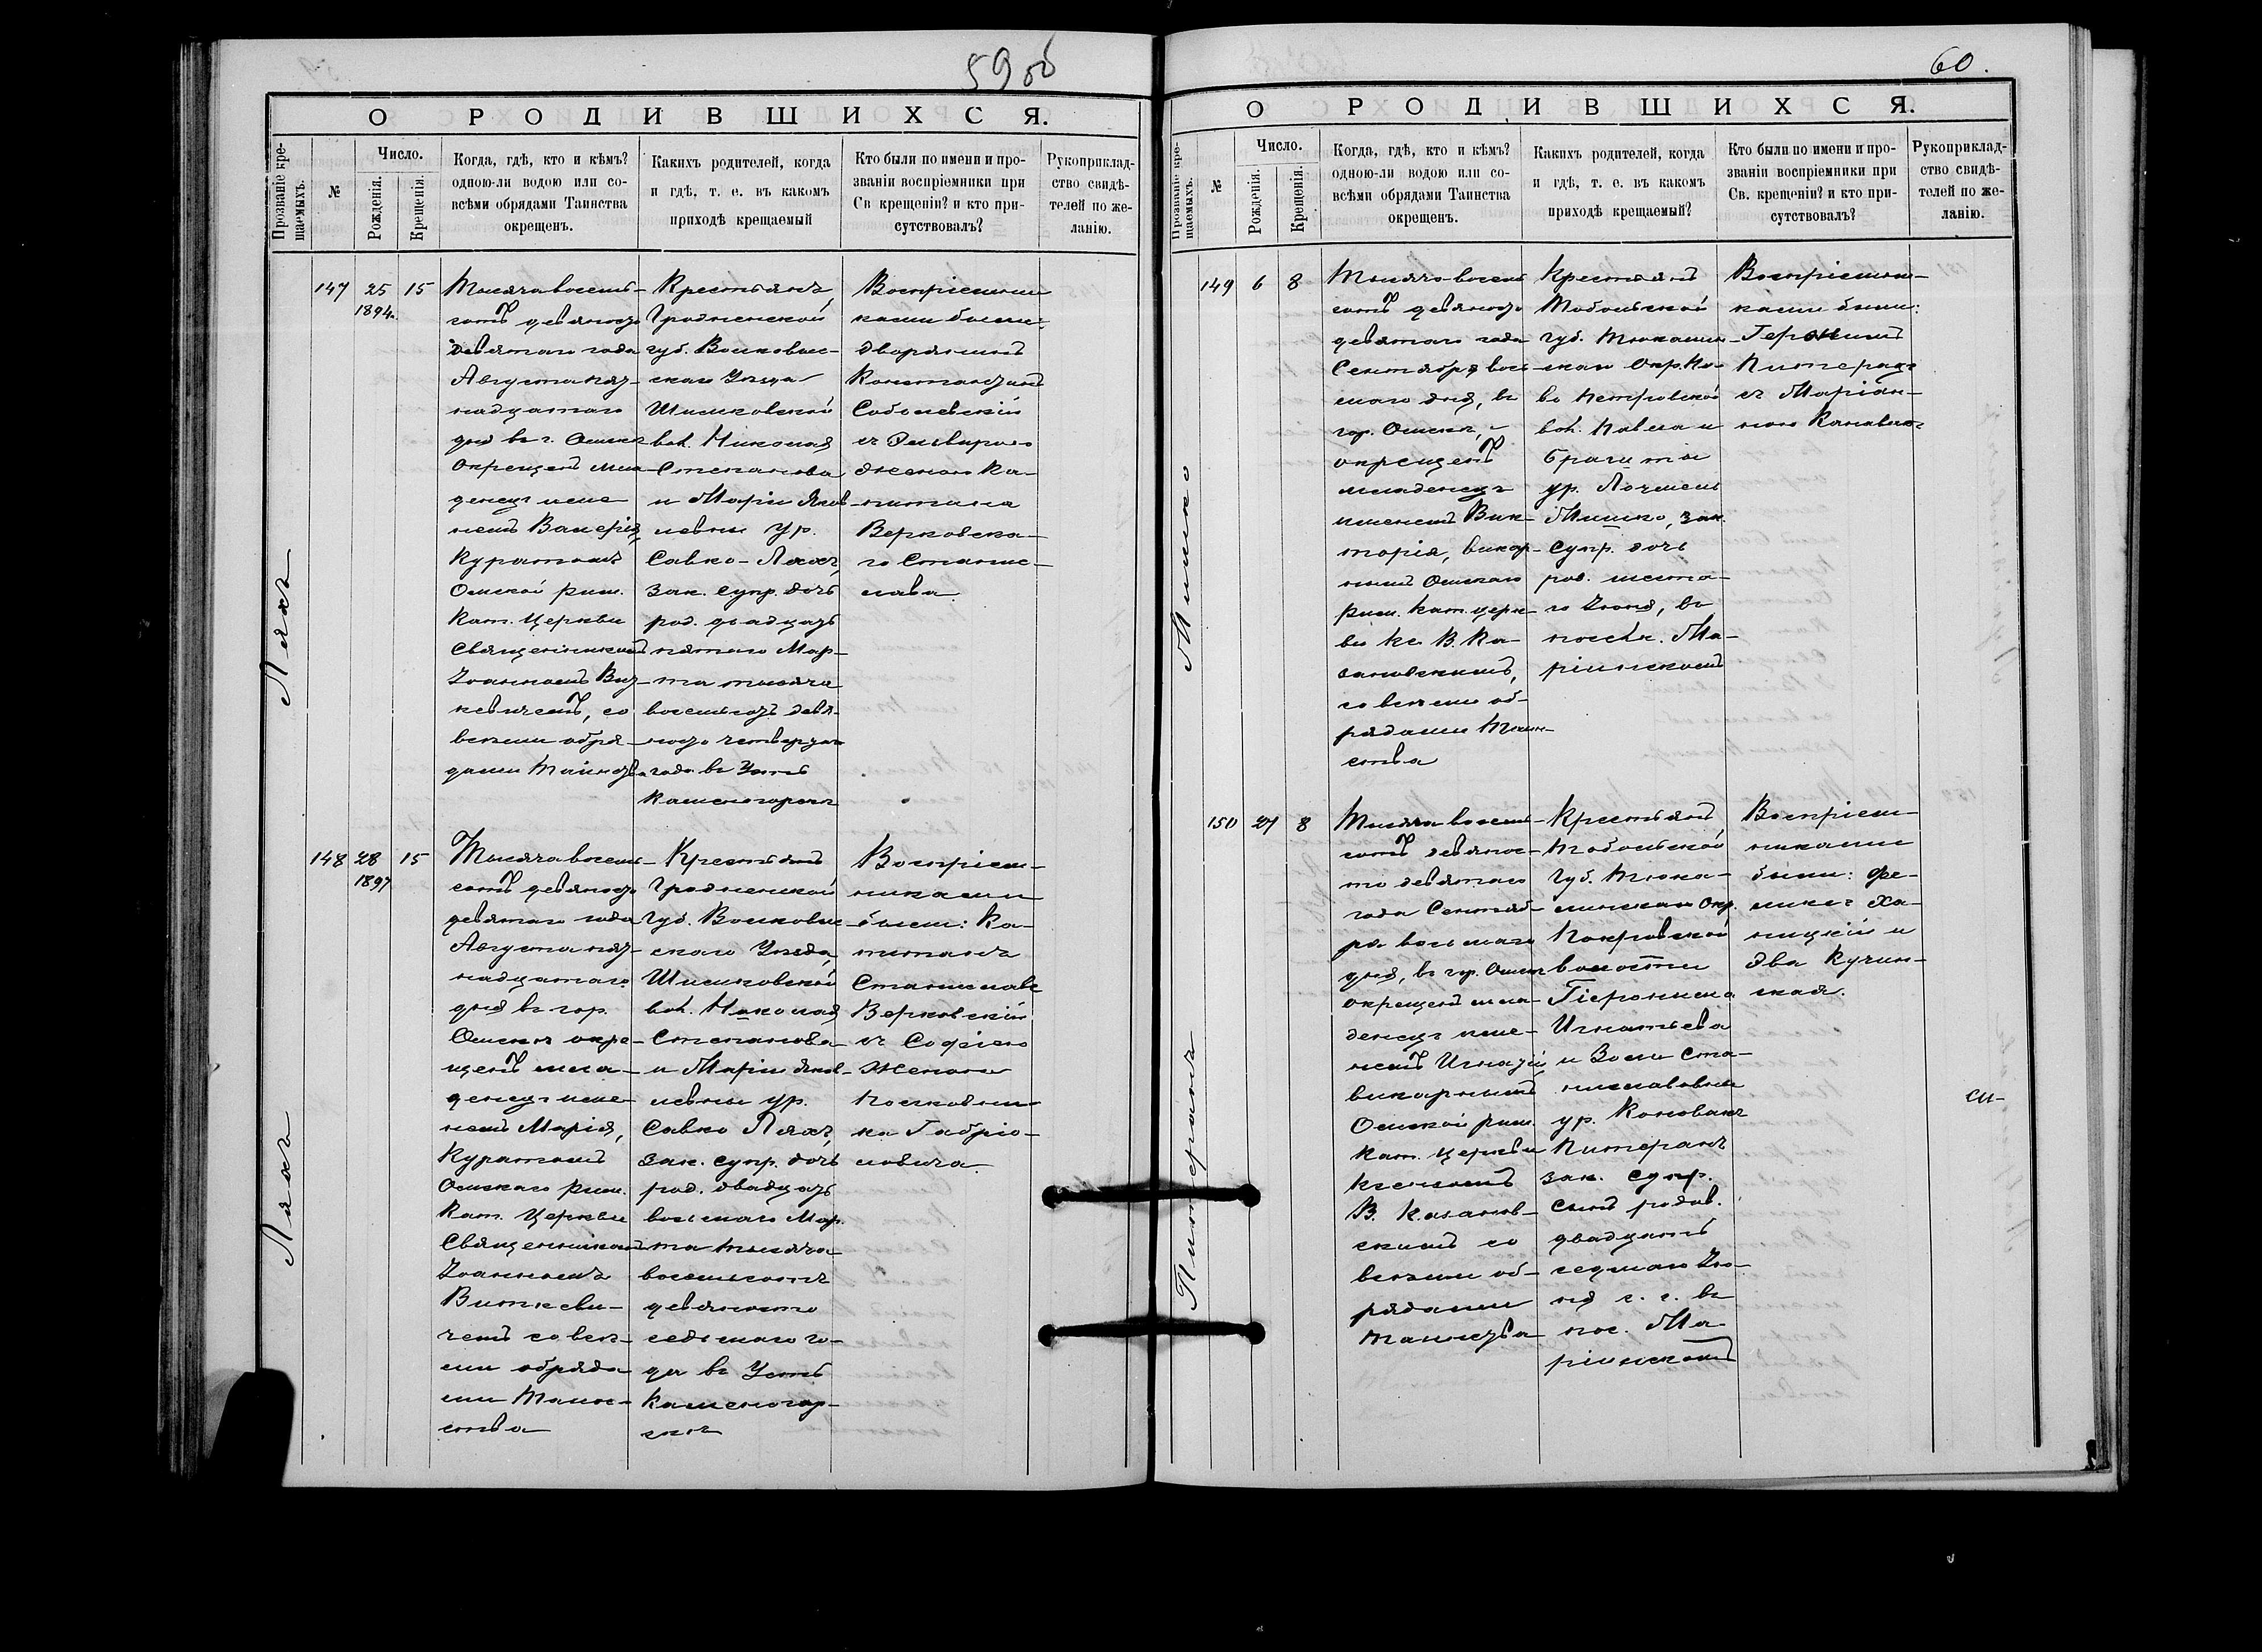 59 об
О РОДИВШИХСЯ.
Прозваніе кре-
щаемыхъ.
№
Число.
Рожденія.
Крещенія.
Когда, гдѣ, кто и кѣмъ?
одною-ли водою или со-
всѣми обрядами Таинства
окрещенъ.
Какихъ родителей, когда
и гдѣ, т. е. въ какомъ
приходѣ крещаемый
Кто были по имени и про-
званіи воспріемники при
Св крещеніи? и кто при-
сутствовалъ?
Рукоприклад-
ство свидѣ-
телей по же-
ланію.
Ляхъ
147
25
1894.
15
Тысяча восемь-
сотъ девяносто
девятаго года
Августа пят-
надцатаго
дня въ г. Омскѣ
окрещенъ мла-
денецъ име-
немъ Валерія,
Куратомъ
Омской рим.
Кат. Церкви
Священникомъ
Іоанномъ Вит-
кевичемъ, со
всѣми обря-
дами Таинства
Крестьянъ
Гродненской
губ. Волковыс-
скаго Уѣзда
Шиловской
вол. Николая
Степанова
и Маріи Яков-
левны ур.
Савко-Ляхъ,
зак. супр. дочь
род. двадцать
пятаго Мар-
та тысяча
восемьсотъ девя-
носто четвертаго
года въ Усть
Каменогорскѣ
Воспріемни-
ками были:
дворянинъ
Константинъ
Соболевскій
съ Эльвирою
женою Ка-
питана
Верковска-
го Станис-
лава.
Ляхъ
148
28
1897
15
Тысяча восемь-
сотъ девяносто
девятаго года
Августа пят-
надцатаго
дня въ гор.
Омскѣ окре-
щенъ мла-
денецъ име-
немъ Марія,
Куратомъ
Омскаго рим.
Кат. Церкви
Священникомъ
Іоанномъ
Виткеви-
чемъ со всѣ-
ми обряда-
ми Таин-
ства
Крестьянъ
Гродненской
Губ. Волковыс-
скаго Уѣзда,
Шиловской
вол. Николая
Степанова
и Маріи Яков-
левны ур.
Савко Ляхъ,
зак. супр. дочь
род. двадцать
восьмаго Мар-
та тысяча
восемьсотъ
девяносто
седьмаго го-
да въ Усть
Каменогор-
скѣ
Воспріем-
никами
были: Ка-
питанъ
Станиславъ
Верковскій
съ Софіею
женою
Полковни-
ка Габріо-
ловича
60.
О РОДИВШИХСЯ.
Прозваніе кре-
щаемыхъ.
№
Число.
Рожденія.
Крещенія.
Когда, гдѣ, кто и кѣмъ?
одною-ли водою или со-
всѣми обрядами Таинства
окрещенъ.
Какихъ родителей, когда
и гдѣ, т. е. въ какомъ
приходѣ крещаемый?
Кто были по имени и про-
званіи воспріемники при
Св. крещеніи? и кто при-
сутствовалъ?
Рукоприклад-
ство свидѣ-
телей по же-
ланію.
Мишко
149
6
8
Тысяча восемь
сотъ девяносто
девятаго года
Сентября вось-
маго дня, въ
гор. Омскѣ,
окрещенъ
младенецъ
именемъ Вик-
торія, викар-
нымъ Омскаго
Рим. кат. церк-
ви Кс В. Ка-
зановскимъ,
со всѣми об-
рядами Таин-
ства
Крестьянъ
Тобольской
губ. Тюкалин-
скаго Окр.
вол. Павла и
Бригиты
ур.
Мишко, зак.
супр. дочь
род. шеста-
го Іюня, въ
посёлк. Ма-
ріинскомъ
Воспріемни-
ками были:
Геронимъ
Питеранъ
съ Маріан-
ною
Питеранъ
150
27
8
Тысяча восемь-
сотъ девянос-
то девятаго
года Сентяб-
ря восьмаго
дня, въ гор. Омскѣ
окрещенъ мла-
денецъ име-
немъ Игнатій
викарнымъ
Омской рим.
Кат. Церкви
Ксендзомъ
В. Казанов-
скимъ со
всѣми об-
рядами
таинства
Крестьянъ
Тобольской
Губ. Тюка-
линскаго Окр.
Покровской
волости
Гіеронима
Игнатьева
и Зоси Ста-
ниславовны
ур. Коновалъ
Питеранъ
зак. супр.
сынъ родов.
двадцать
седмаго Ію-
ня с. г. въ
пос. Ма-
ріинскомъ
Воспріем-
никами
были: Фе-
ликсъ Ха-
ницкій и
Эва Кучин-
ская.
си-